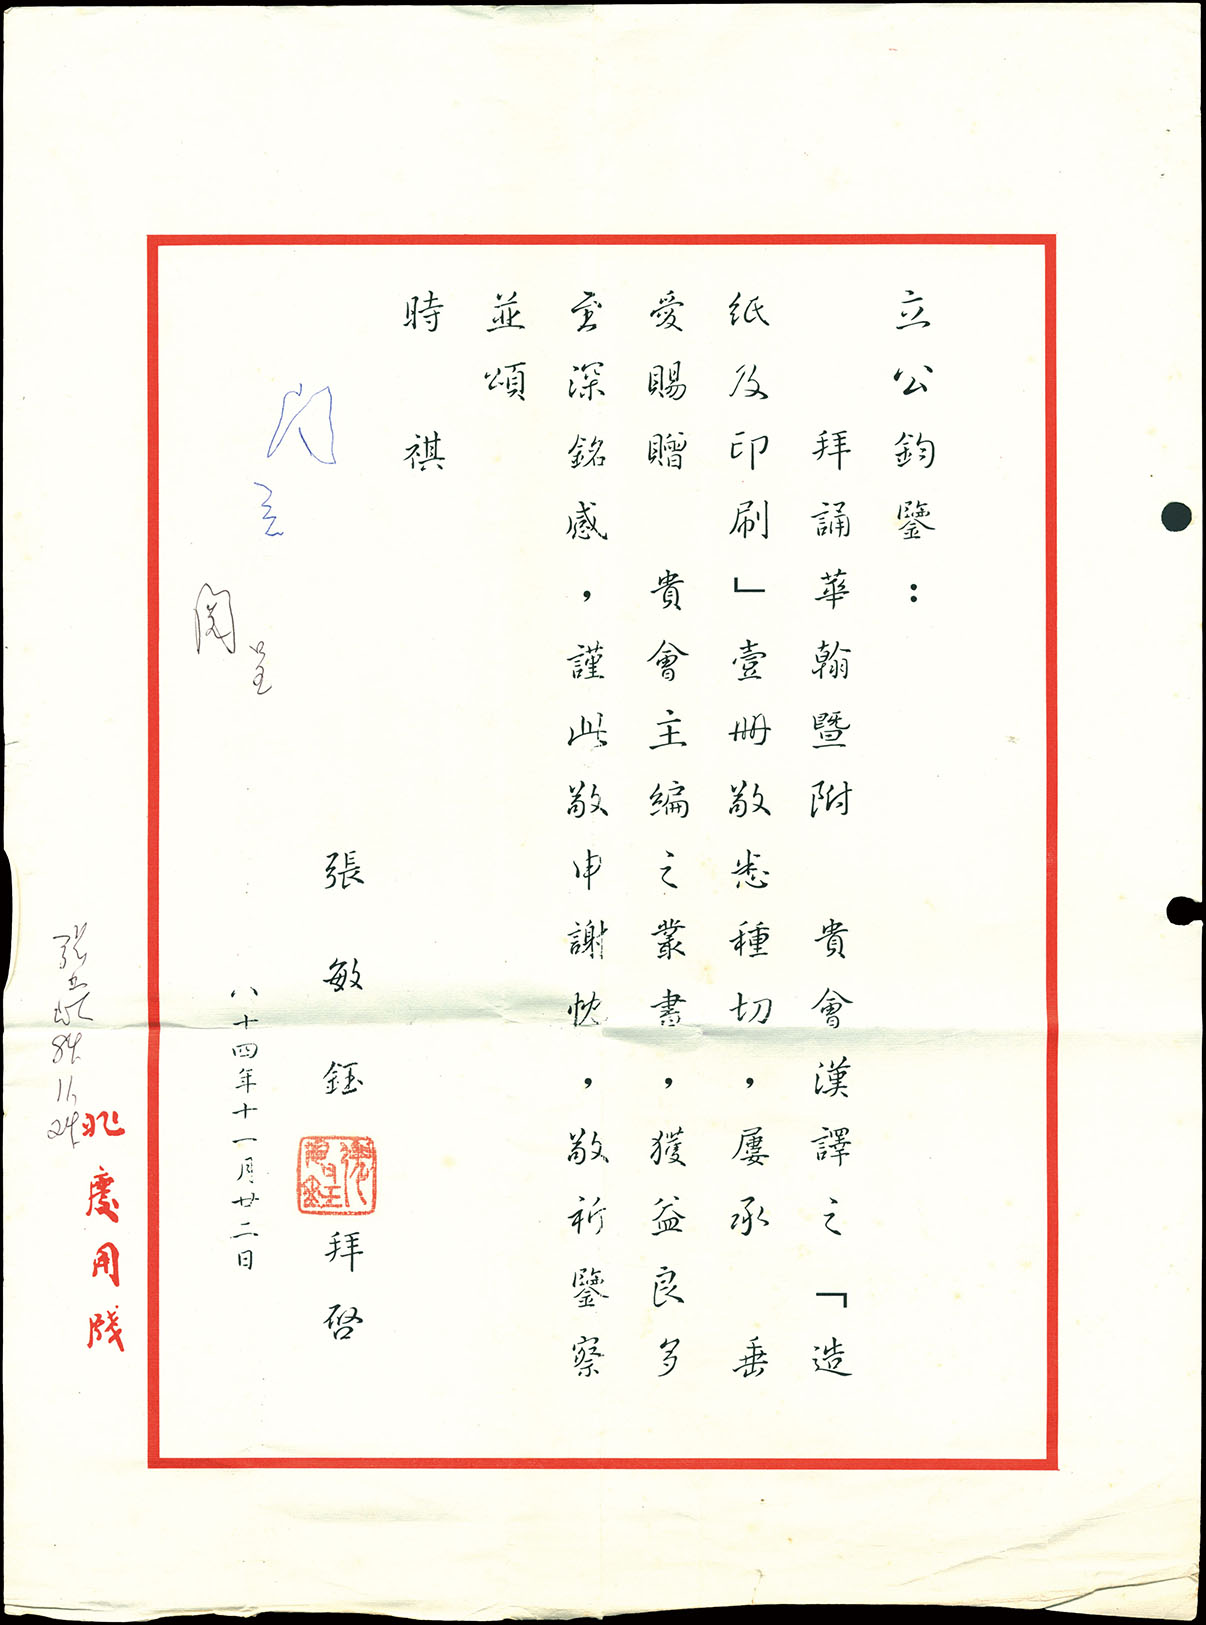 立公鈞鑒：
拜誦華翰暨附　貴會漢譯之「造
紙及印刷」壹册敬悉種切，屢承　垂
愛賜贈　貴會主編之叢書，獲益良多
至深銘感，謹此敬申謝忱，敬祈鑒察
並頌
時　祺
張敏鈺
拜啓
八十四年十一月廿二日
閱
呈
84.11.24
用牋